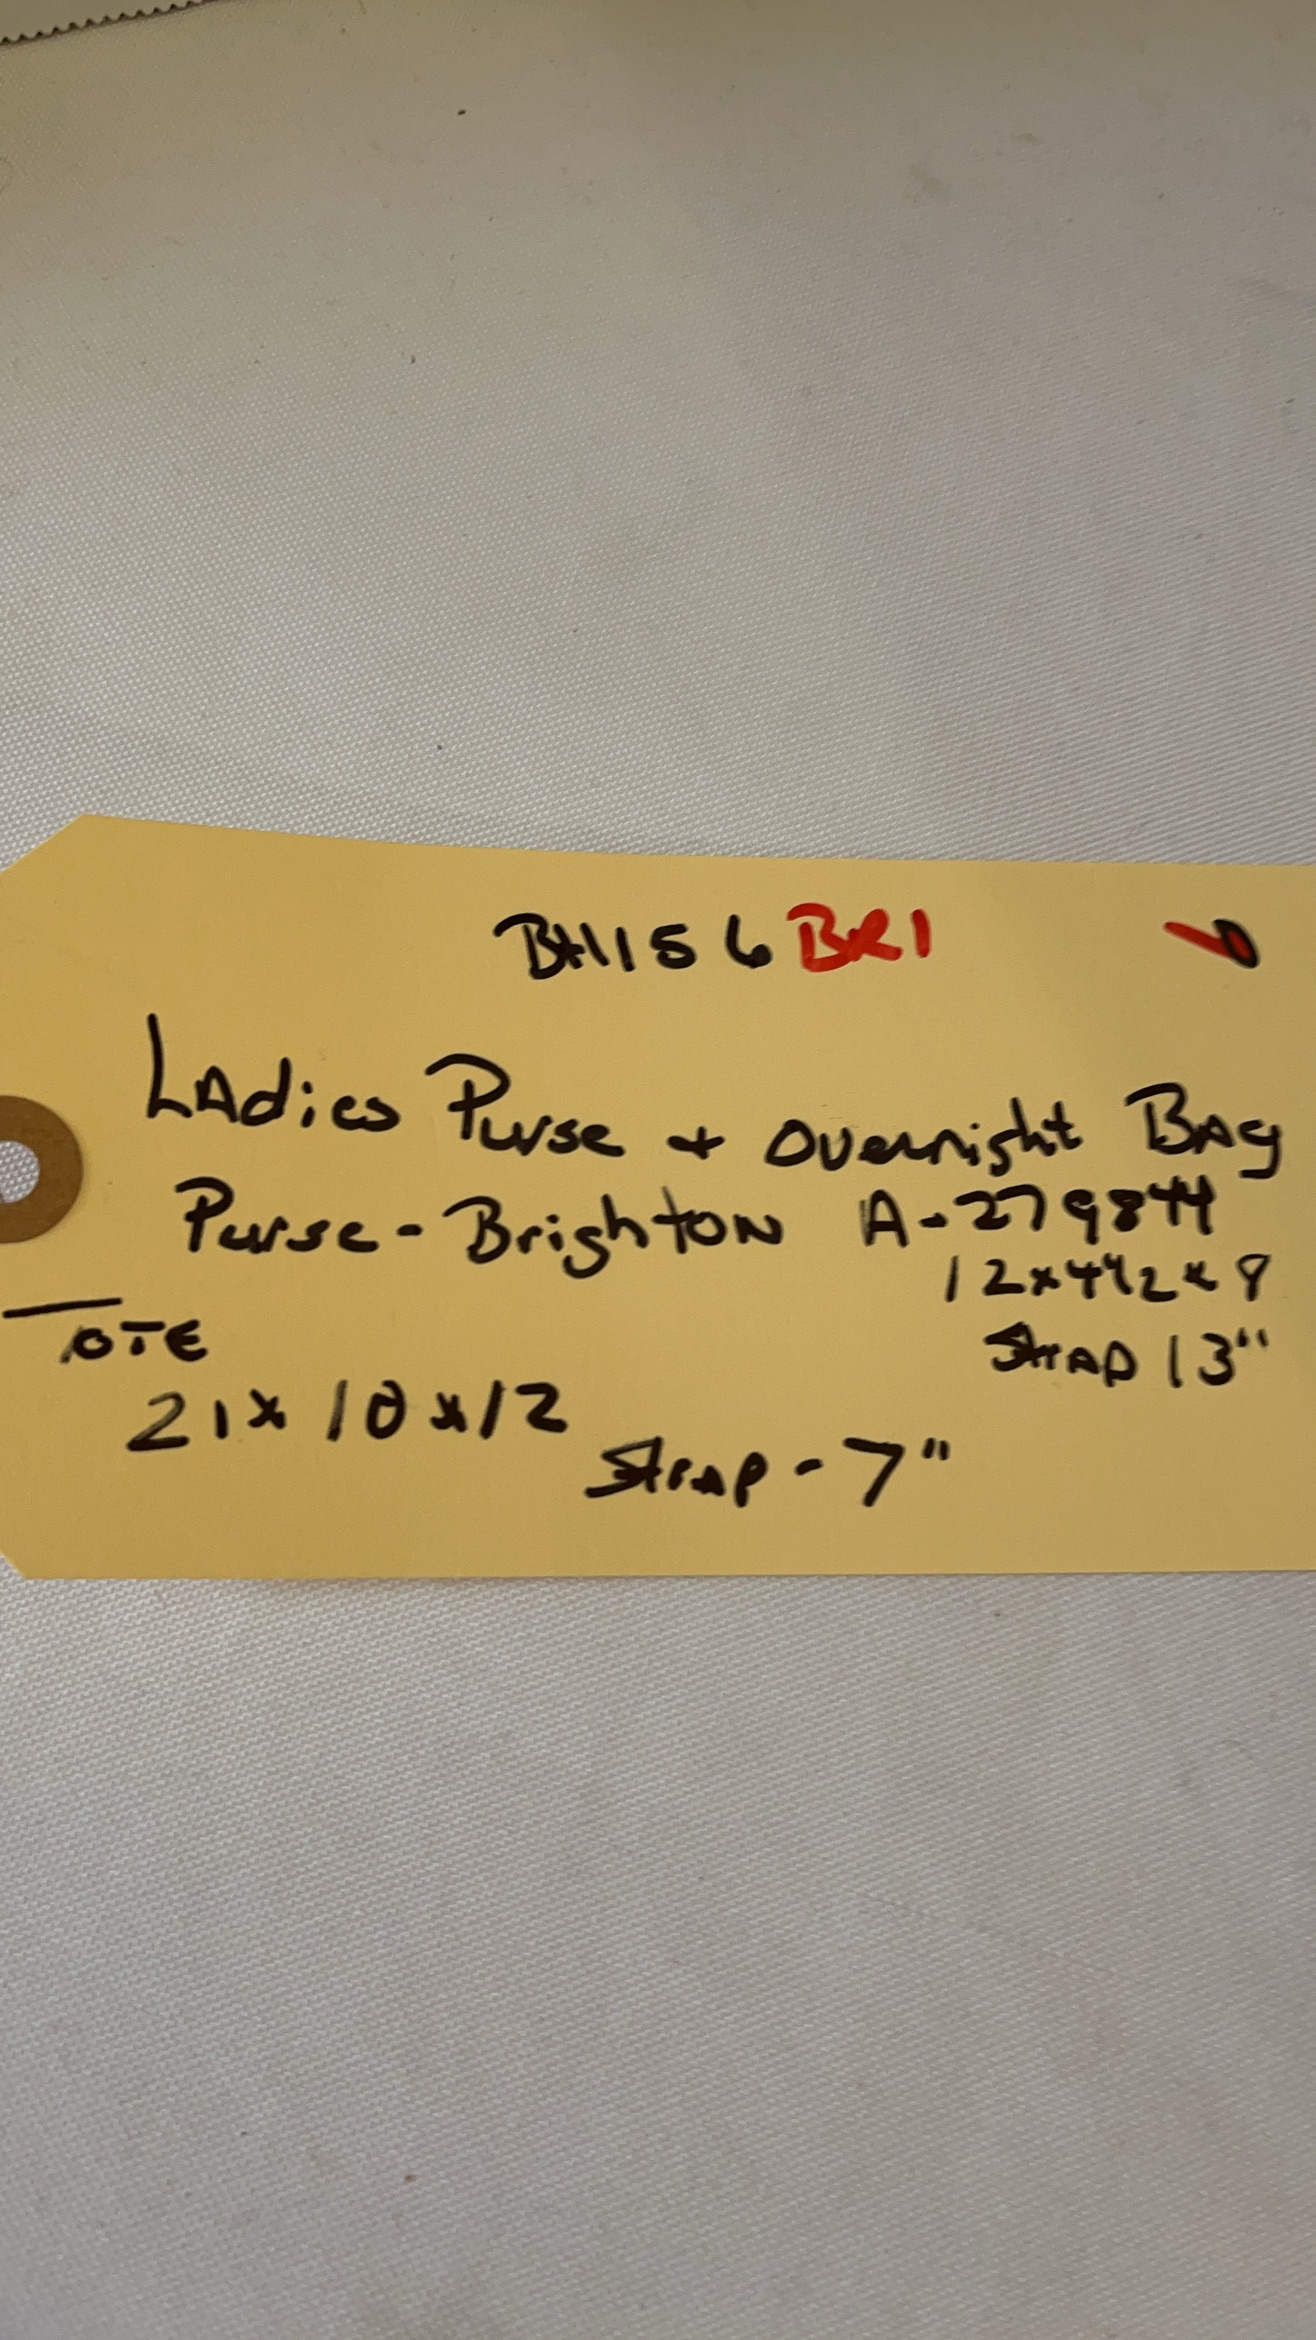 BH1156 BR1
LAdies Purse + Overnight BAg
Purse - Brighton A-279844
12x4 1/2 x 9
Strap 13"
TOTE
21x 10 x 12
Strap - 7"